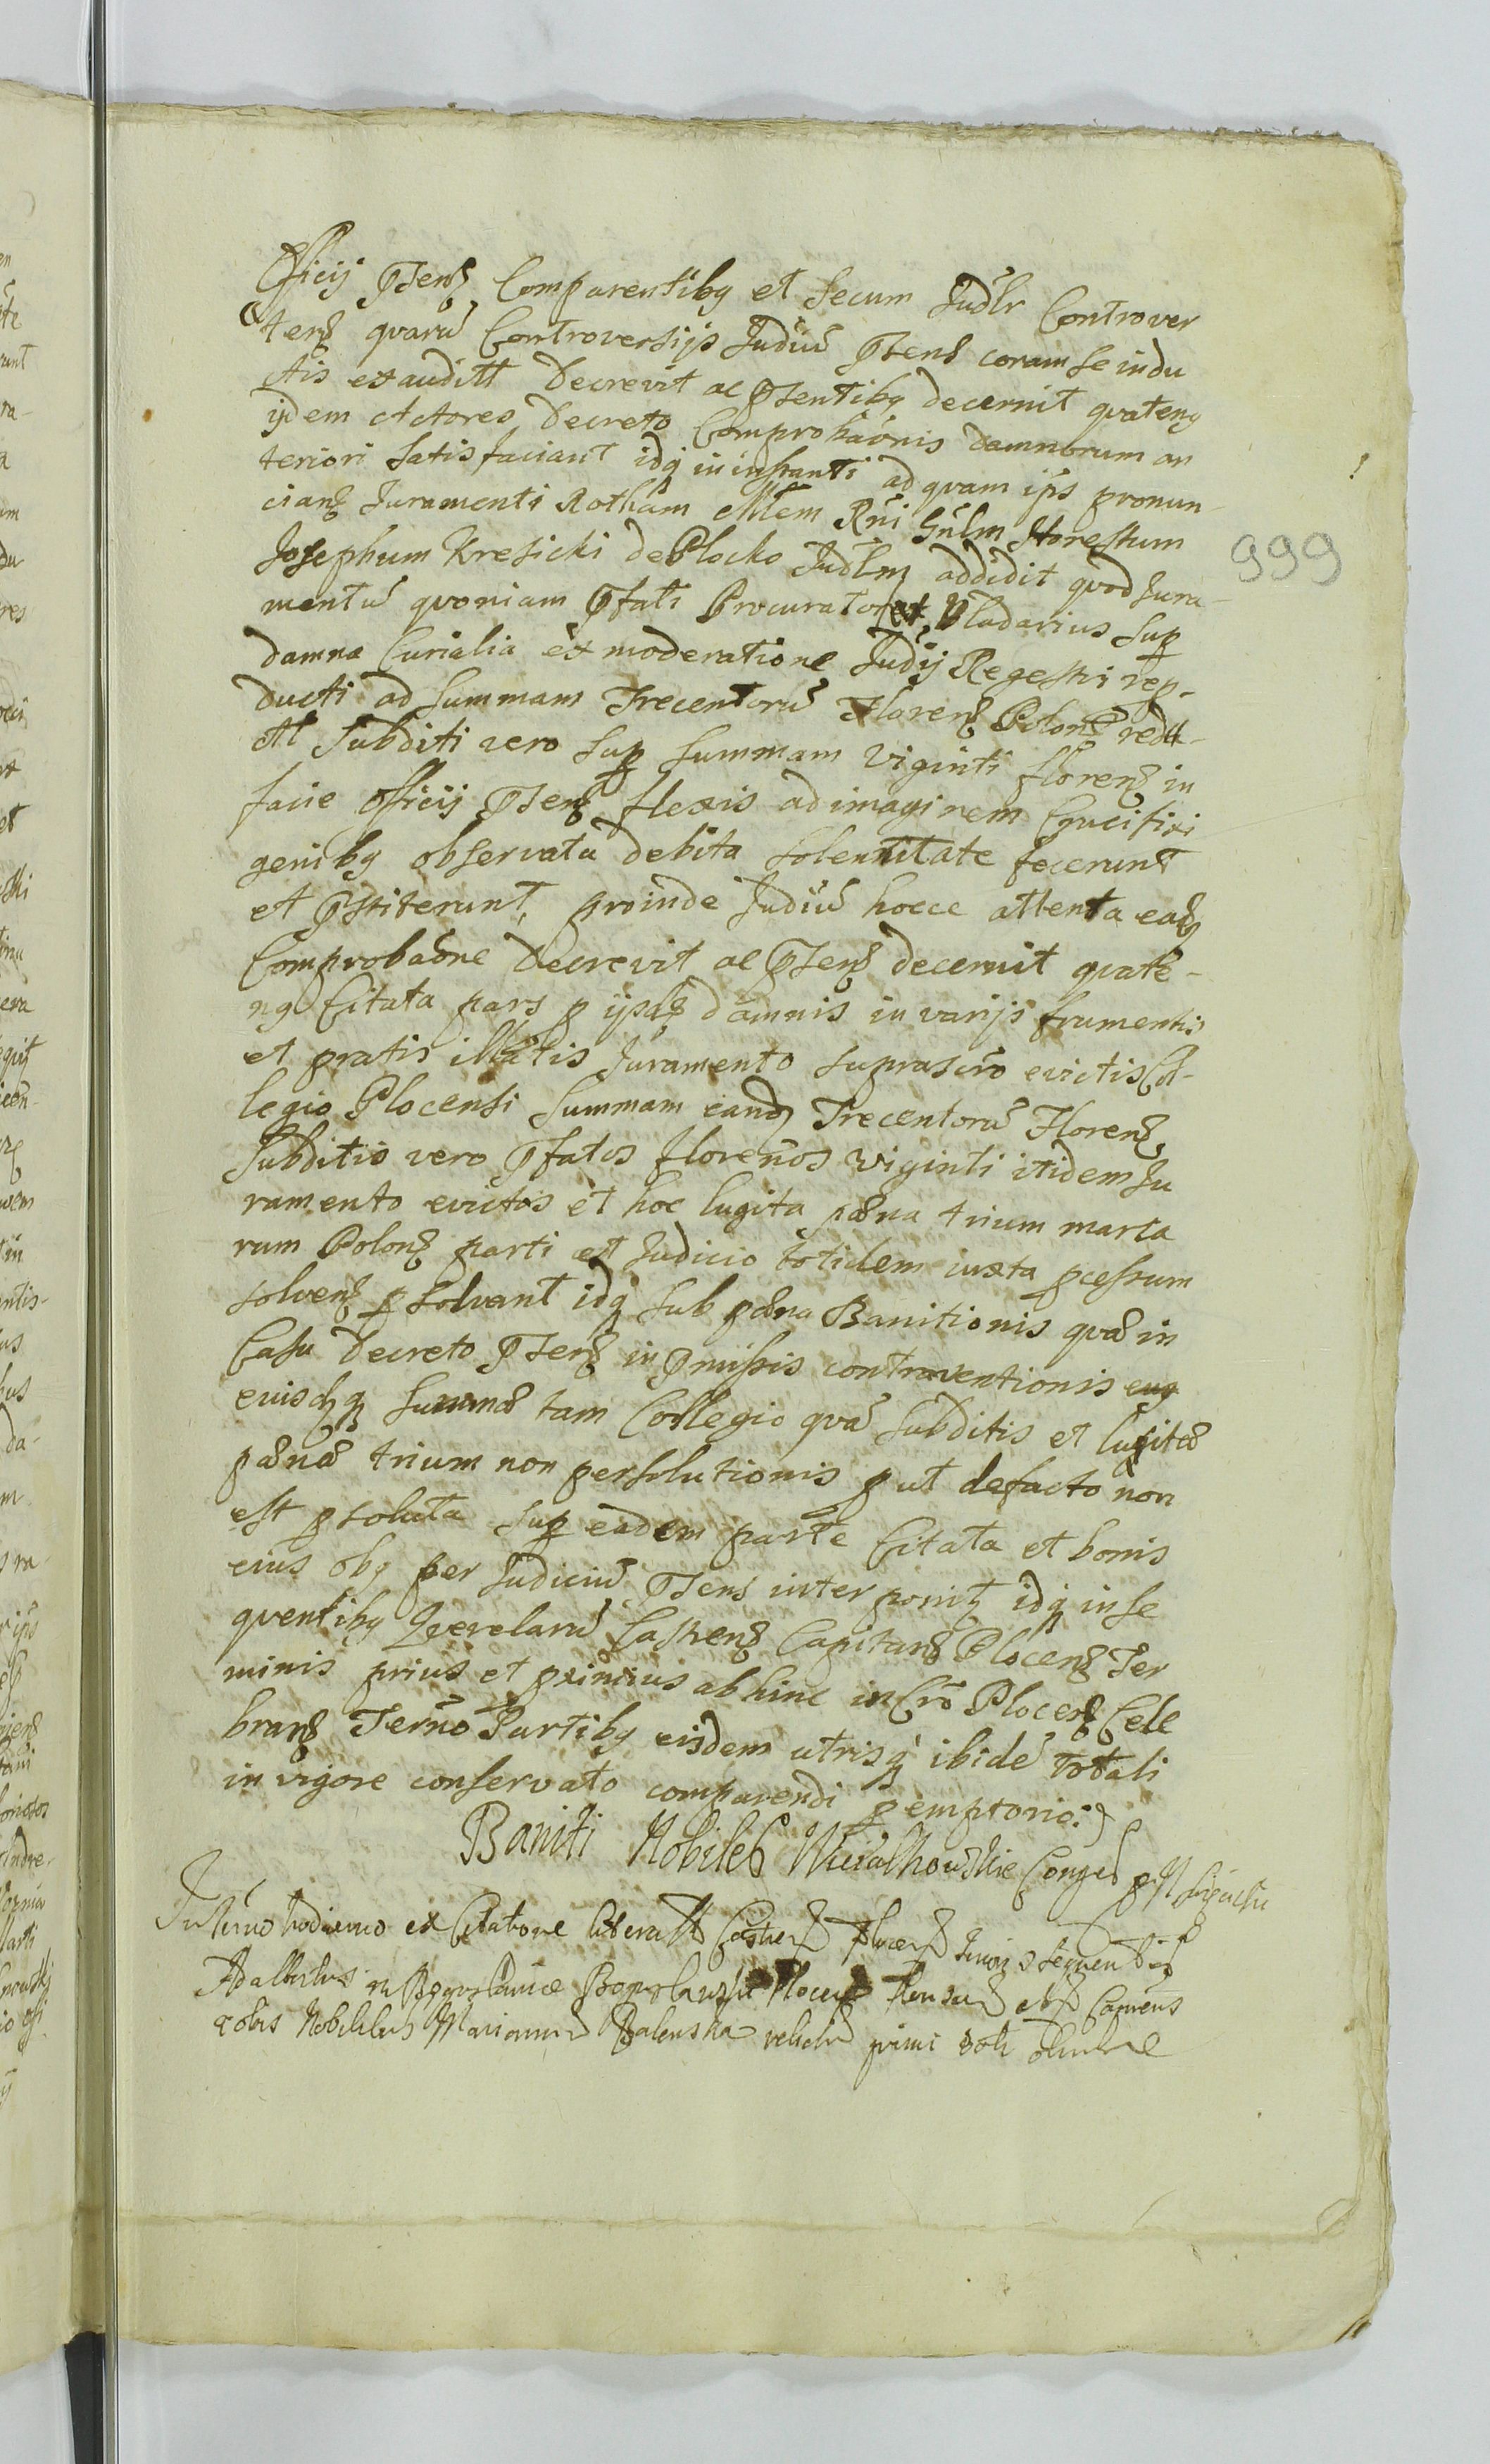 Officij Psens Comparentibq et Secum Judlr Controver
tens quaru Controversijs Judiu Psens coram se indu
ctis exauditt Decrevit ac Psentibq decernit quatenq
ijdem Actores Decreto Comprobaonis damnorum an
teriori Satisfaciant idq in instanti ad quam ijs pronun-
cians Juramenti Rotham Mtem Rni Gnlm Honestum
Josephum Kresicki de Plocko Judlm addidit quod Jura-
mentu quoniam Pfati Procurator et Vladarius Sup
damna Curialia ex moderatione Judij Regestri rep-
ducti ad Summam Trecentoru Florens Polons redu-
At Subditi vero Sup Summam Viginti florens in
facie Officij Psens flexis ad imaginem Crucifixi
genibq observata debita Solennitate fecerunt
et Pstiterunt, proinde Judiu hocce attenta eadq
Comprobaone Decrevit ac Psens decernit quate-
nq Citata pars p ijsdq damnis in varijs frumentis
et pratis illatis Juramento suprascro evictis Col-
legio Plocensi Summam eandq Trecentoru Florens
Subditis vero Pfatos florenos Viginti itidem Ju
ramento evictos et hoc lugita pæna trium marca
rum Polons parti et Judicio totidem iuxta pcessum
solvens psolvant idq Sub pæna Banitionis quæ in
Casu Decreto Psens in Pmissis contraventionis
eiusdqq Summæ tam Collegio qua Subditis et lugitæ
pænæ trium non persolutionis put de facto non
est psoluta Sup eadem parte Citata et bonis
eius obq per Judiciu Psens interponit idq in se
quentibq Querelaru Castrens Capitans Plocens Ter
minis prius et primius abhinc in Cro Plocens Cele
brans Termo Partibq eisdem utrisq ibide totali
in vigore conservato comparendi pemptorio:
Baniti Nobiles Conges p
In Termo hodierno ex Citatione literali Castrens Plocens
Adalbertus
Nobilibus Marianna relicta primi voti
999